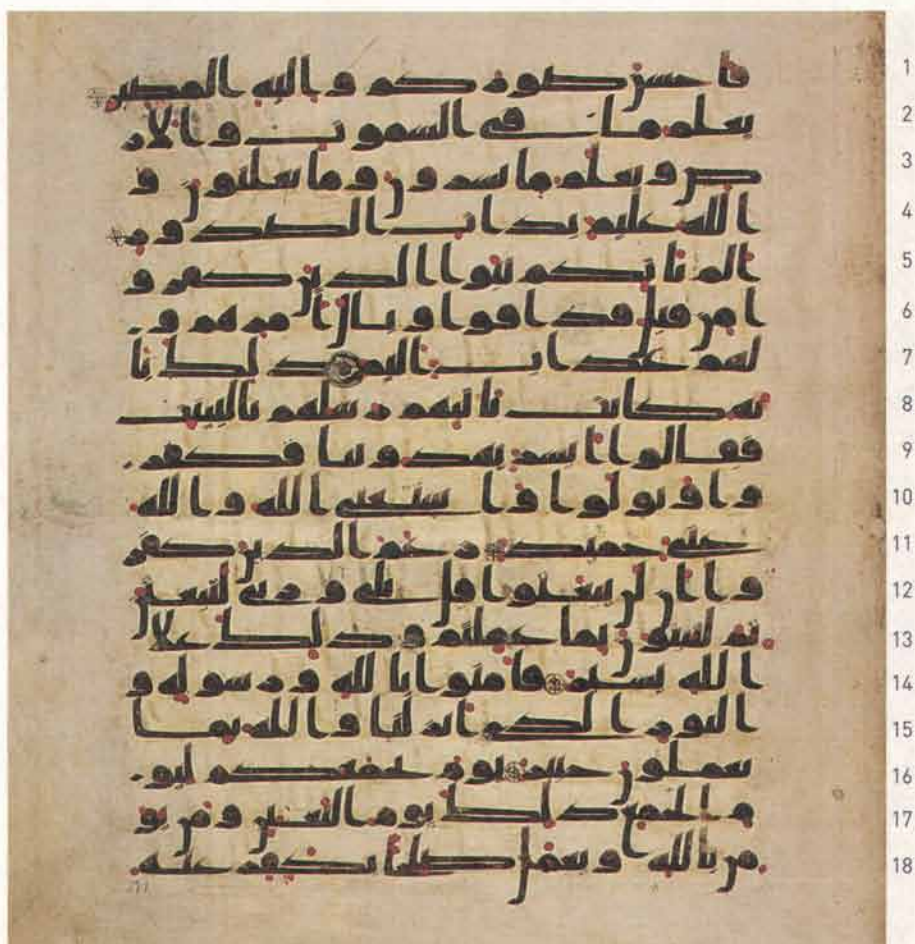 فاحسن صوركم واليه المصير 1
يعلم ما في السموت والار 2
ض ويعلم ما تسرون وما تعلنون و 3
الله عليم بذات الصدور 4
الم ياتكم نبوا الذين كفر و 5
ا من قبل فذاقوا وبال امرهم و 6
لهم عذاب اليم ذلك با 7
نه كانت تاتيهم رسلهم بالبينت 8
فقالوا ابشر يهدوننا فكفر 9
وا وتولوا واستغنى الله والله 10
غني حميد زعم الذين كفر 11
وا ان لن يبعثوا قل بلى وربي لتبعثن 12
ثم لتنبون بما عملتم وذلك علا 13
الله يسير فامنوا بالله ورسوله و 14
النور الذي انزلنا والله بما 15
تعملون خبير يوم يجمعكم ليو 16
م الجمع ذلك يوم التغبن ومن يو 17
من بالله ويعمل صلحا يكفر عنه 18